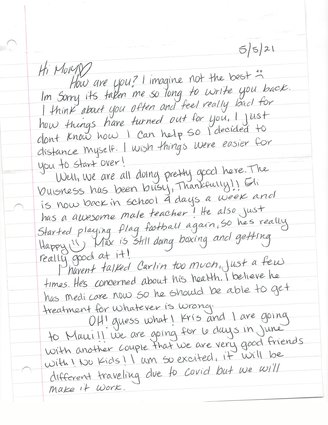 5/5/21
Hi Mom♡
How are you? I imagine not the best ☹
Im sorry its taken me so long to write you back.
I think about you often and feel really bad for
how things have turned out for you, I just
dont know how I can help so I decided to
distance myself. I wish things were easier for
you to start over!
Well, we are all doing pretty good here. The
buisness has been busy, Thankfully!! Eli
is now back in school 4 days a week and
has a awesome male teacher! He also just
started playing flag football again, so he's really
Happy ☺ Max is still doing boxing and getting
really good at it!
I havent talked Carlin too much, just a few
times. Hes concerned about his health. I believe he
has medicare now so he should be able to get
treatment for whatever is wrong.
OH! guess what! Kris and I are going
to Maui!! we are going for 6 days in June
with another couple that we are very good friends
with! No Kids!! I am so excited, it will be
different traveling due to Covid but we will
make it work.